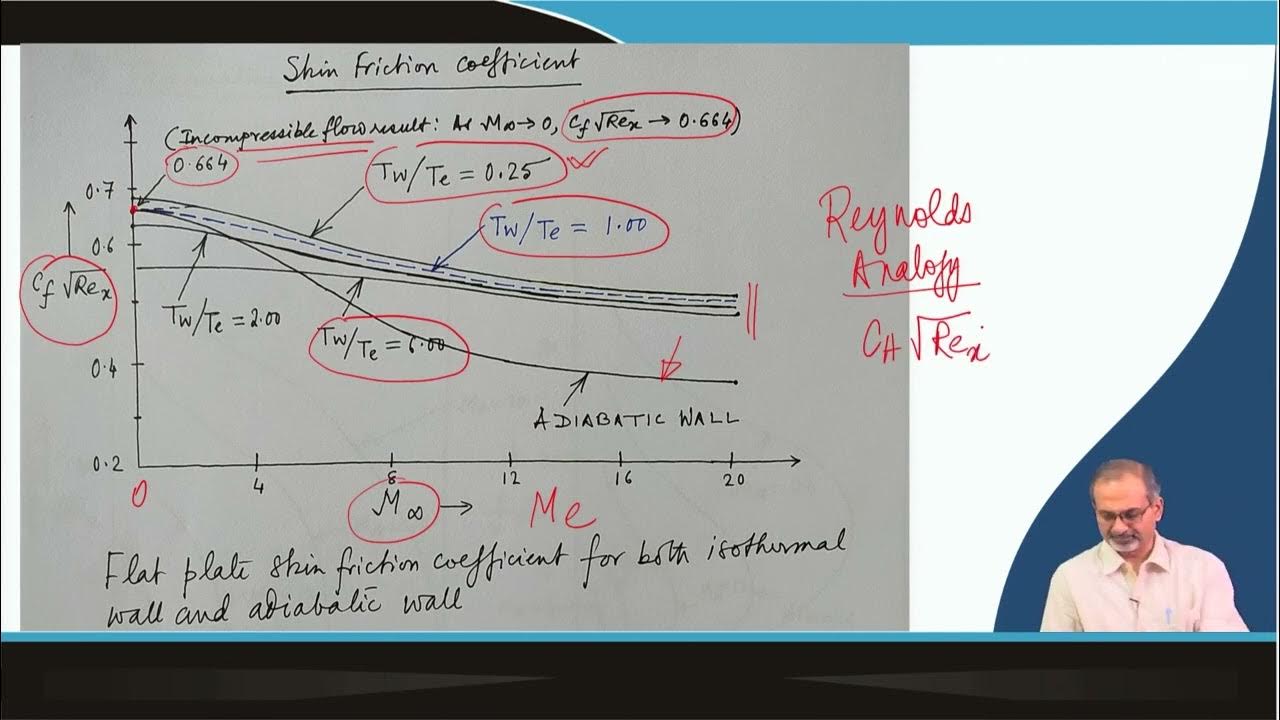 Skin Friction coefficient
(Incompressible flow result: As M∞→0, Cf√Rex → 0.664)
0.664
Tw/Te = 0.25
0.7
Tw/Te = 1.00
Reynolds
Analogy
CH√Rex
0.6
Cf √Rex
Tw/Te = 2.00
Tw/Te = 6.00
0.4
ADIABATIC WALL
0.2
0
4
8
12
16
20
M∞ →
Me
Flat plate skin friction coefficient for both isothermal
wall and adiabatic wall